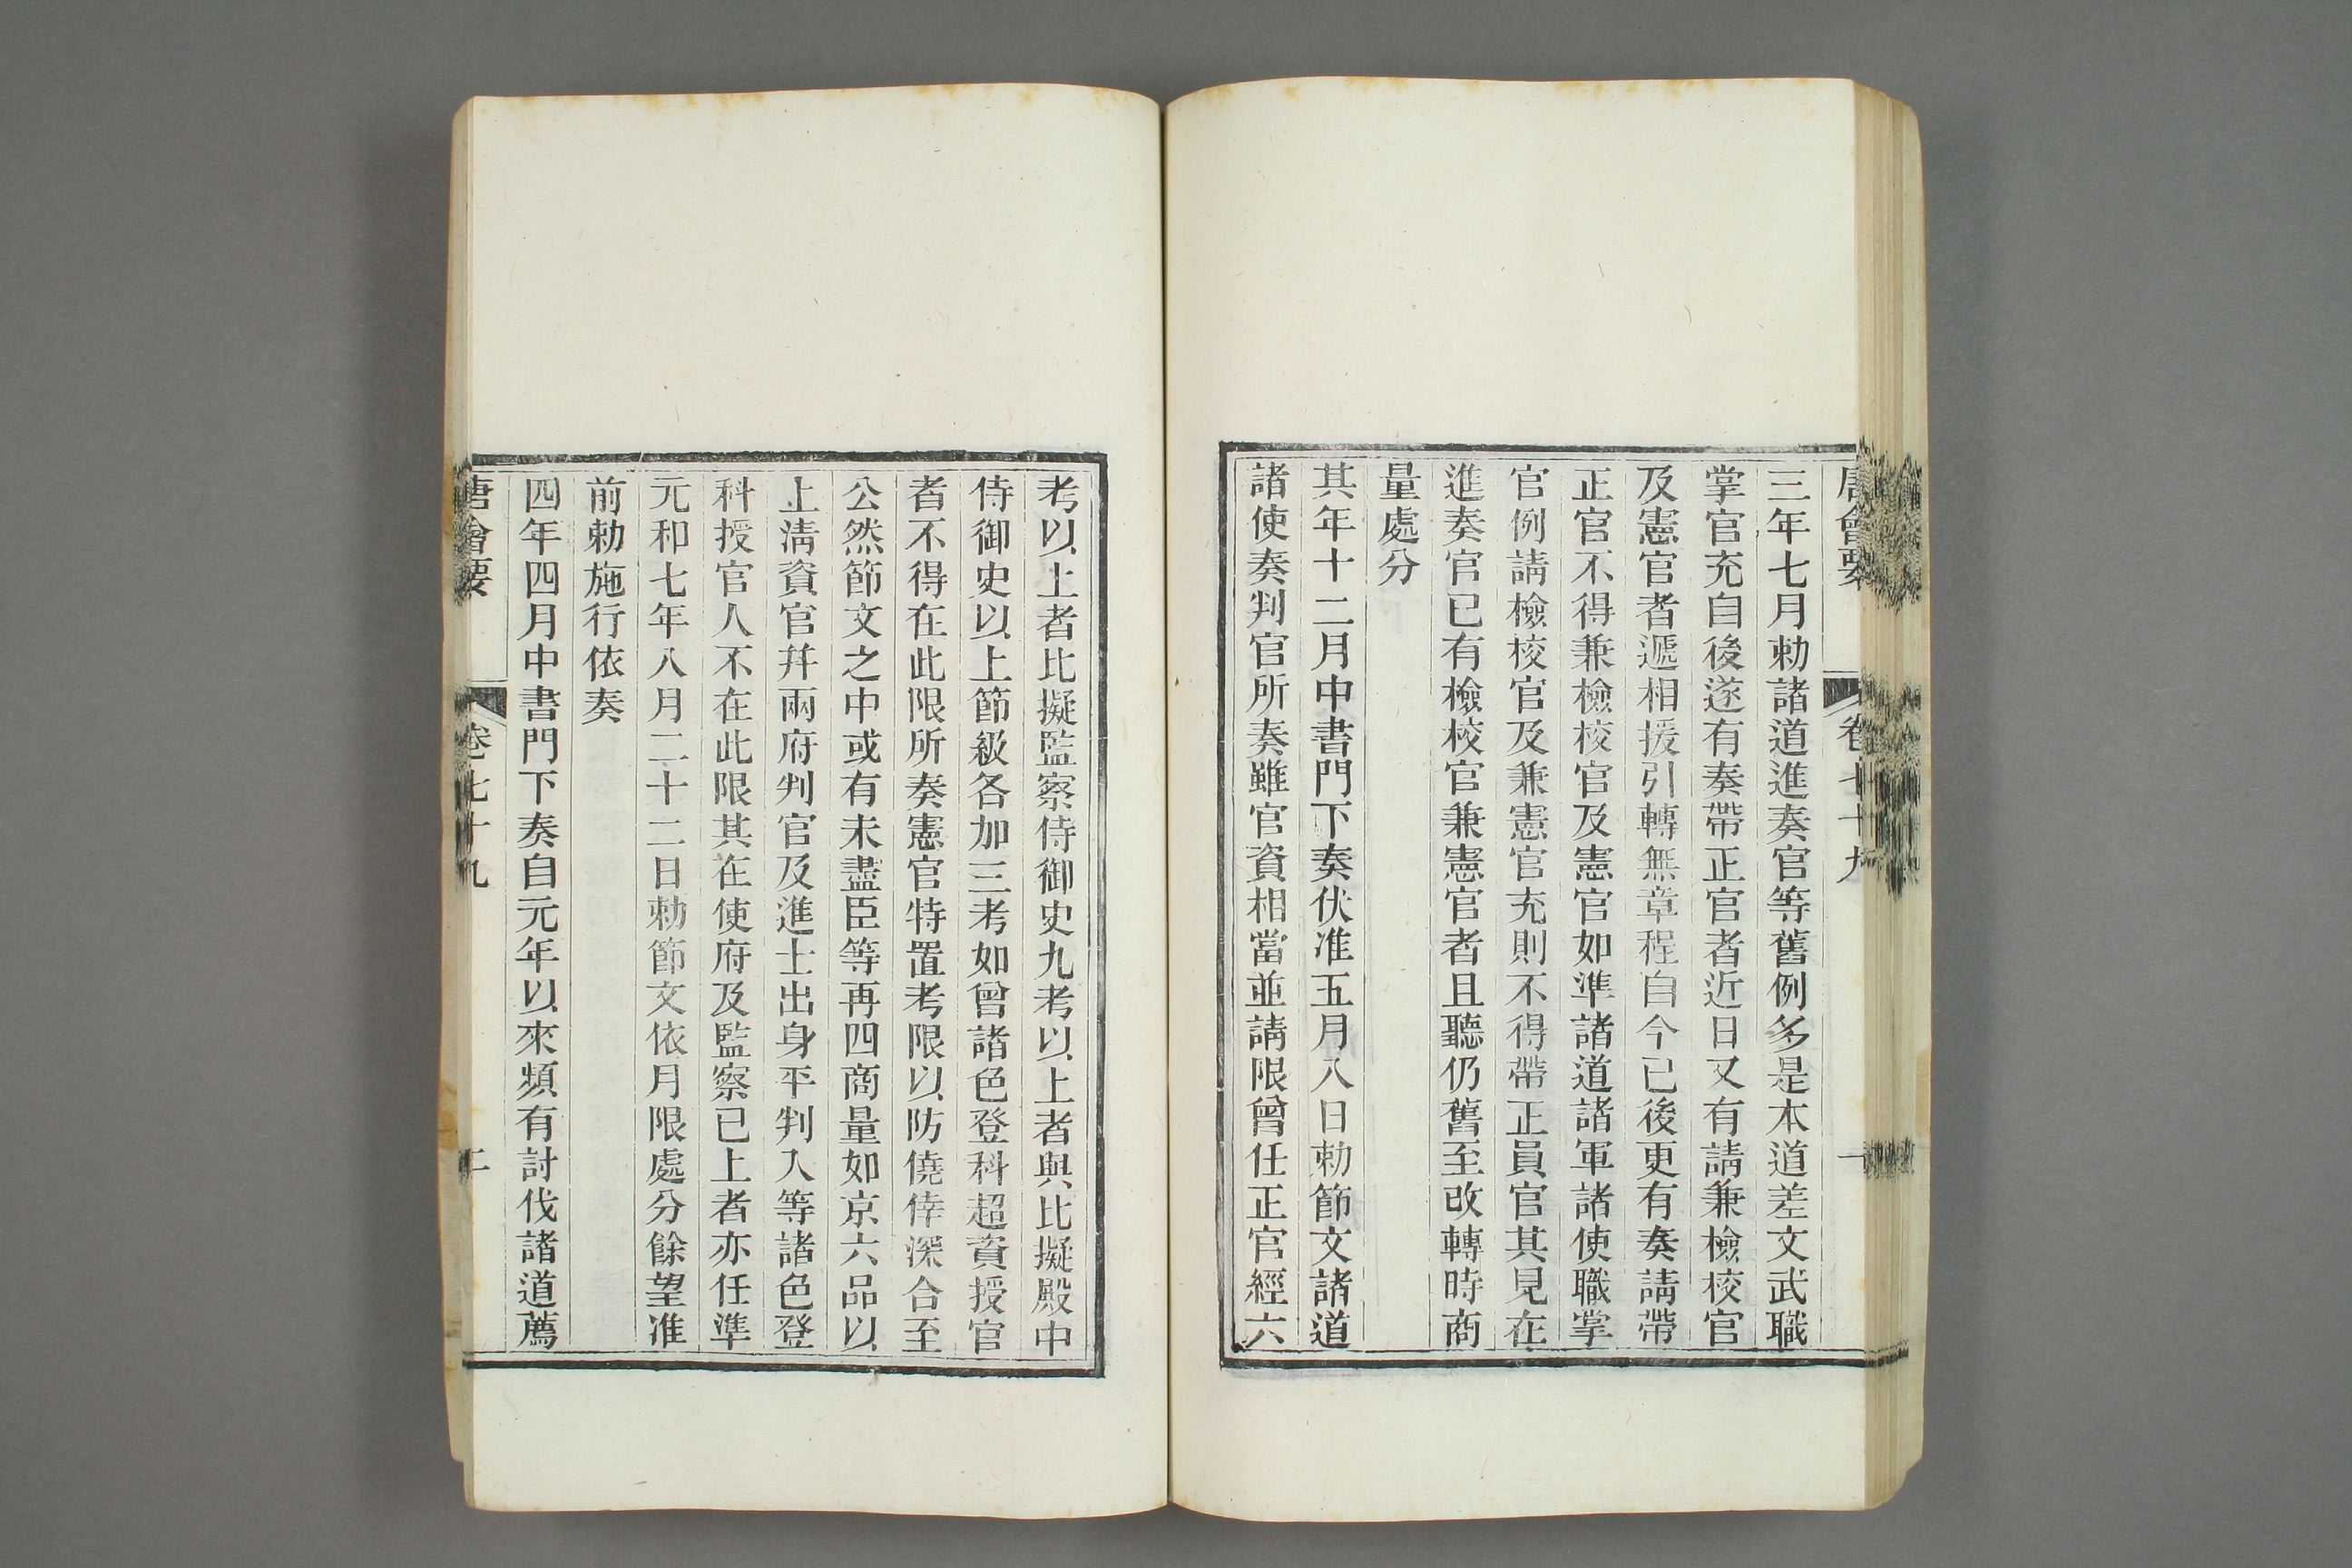 唐會要 卷七十九 一
三年七月勅諸道進奏官等舊例多是本道差文武職
掌官充自後遂有奏帶正官者近日又有請兼檢校官
及憲官者遞相援引轉無章程自今已後更有奏請帶
正官不得兼檢校官及憲官如準諸道諸軍諸使職掌
官例請檢校官及兼憲官充則不得帶正員官其見在
進奏官已有檢校官兼憲官者且聽仍舊至改轉時商
量處分
其年十二月中書門下奏伏准五月八日勅節文諸道
諸使奏判官所奏雖官資相當並請限曾任正官經六
考以上者比擬監察侍御史九考以上者與比擬殿中
侍御史以上節級各加三考如曾諸色登科超資授官
者不得在此限所奏憲官特置考限以防僥倖深合至
公然節文之中或有未盡臣等再四商量如京六品以
上清資官并兩府判官及進士出身平判入等諸色登
科授官人不在此限其在使府及監察已上者亦任準
元和七年八月二十二日勅節文依月限處分餘望准
前勅施行依奏
四年四月中書門下奏自元年以來頻有討伐諸道薦
唐會要 卷七十九 二